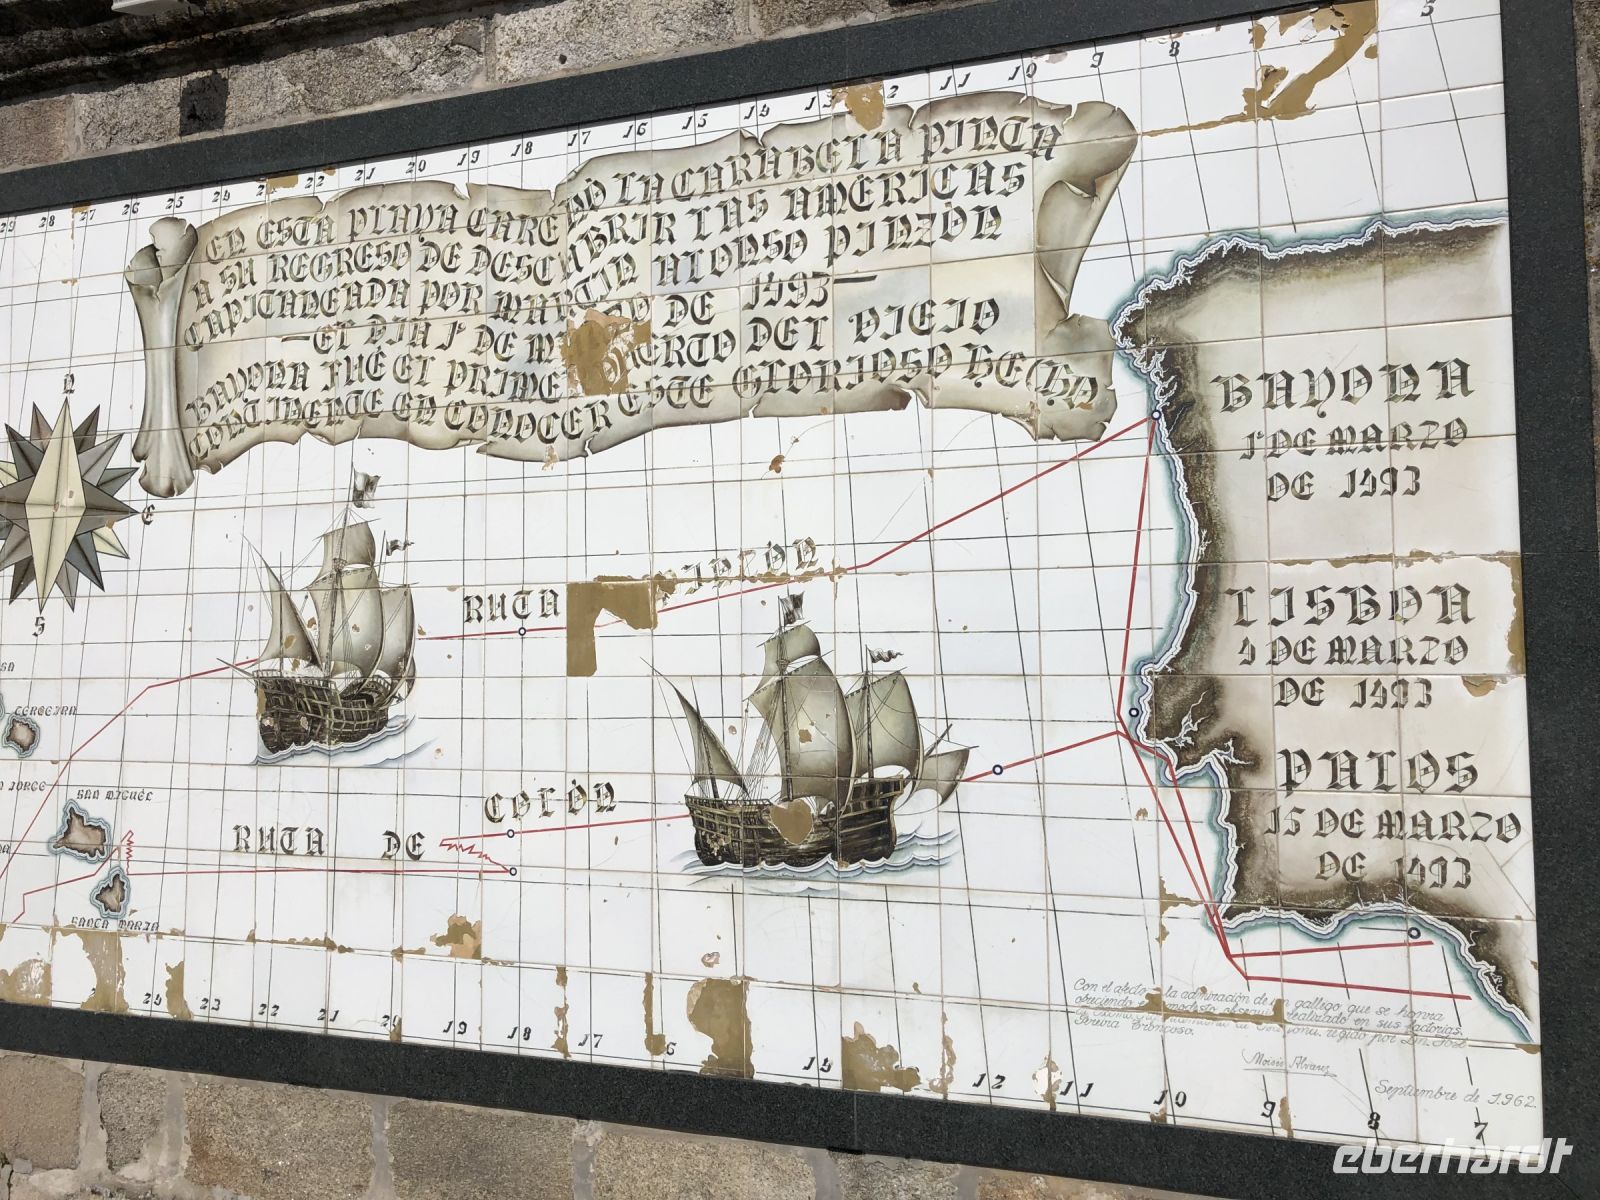 29 28 27 26 25 24 22 21 20 19 18 17 16 15 14 13 2 11 10 9 8 5
EN ESTA PLAYA CARE NO LA CARABELA PINTA
A SU REGRESO DE DESCUBRIR LAS AMERICAS
CAPITANEADA POR MARTIN ALONSO PINZÓN
—EL DIA 1º DE M ZO DE 1493—
BAYONA FUÉ EL PRIME UERTO DEL VIEJO
CONTINENTE EN CONOCER ESTE GLORIOSO HECHO
N
E
S
BAYONA
1º DE MARZO
DE 1493
RUTA PINZÓN
LISBOA
4 DE MARZO
DE 1493
TERCEIRA
JORGE
SAN MIGUÉL
RUTA DE COLÓN
SANTA MARIA
PALOS
15 DE MARZO
DE 1493
Con el afecto la admiración de un gallego que se honra
ofreciendo e modesto obsequi realizado en sus factorias
regido por Dn. José
Pereira Troncoso.
Moisés Alvarez
Septiembre de 1.962.
24 23 22 21 20 19 18 17 6 14 12 11 10 9 8 7
eberhardt